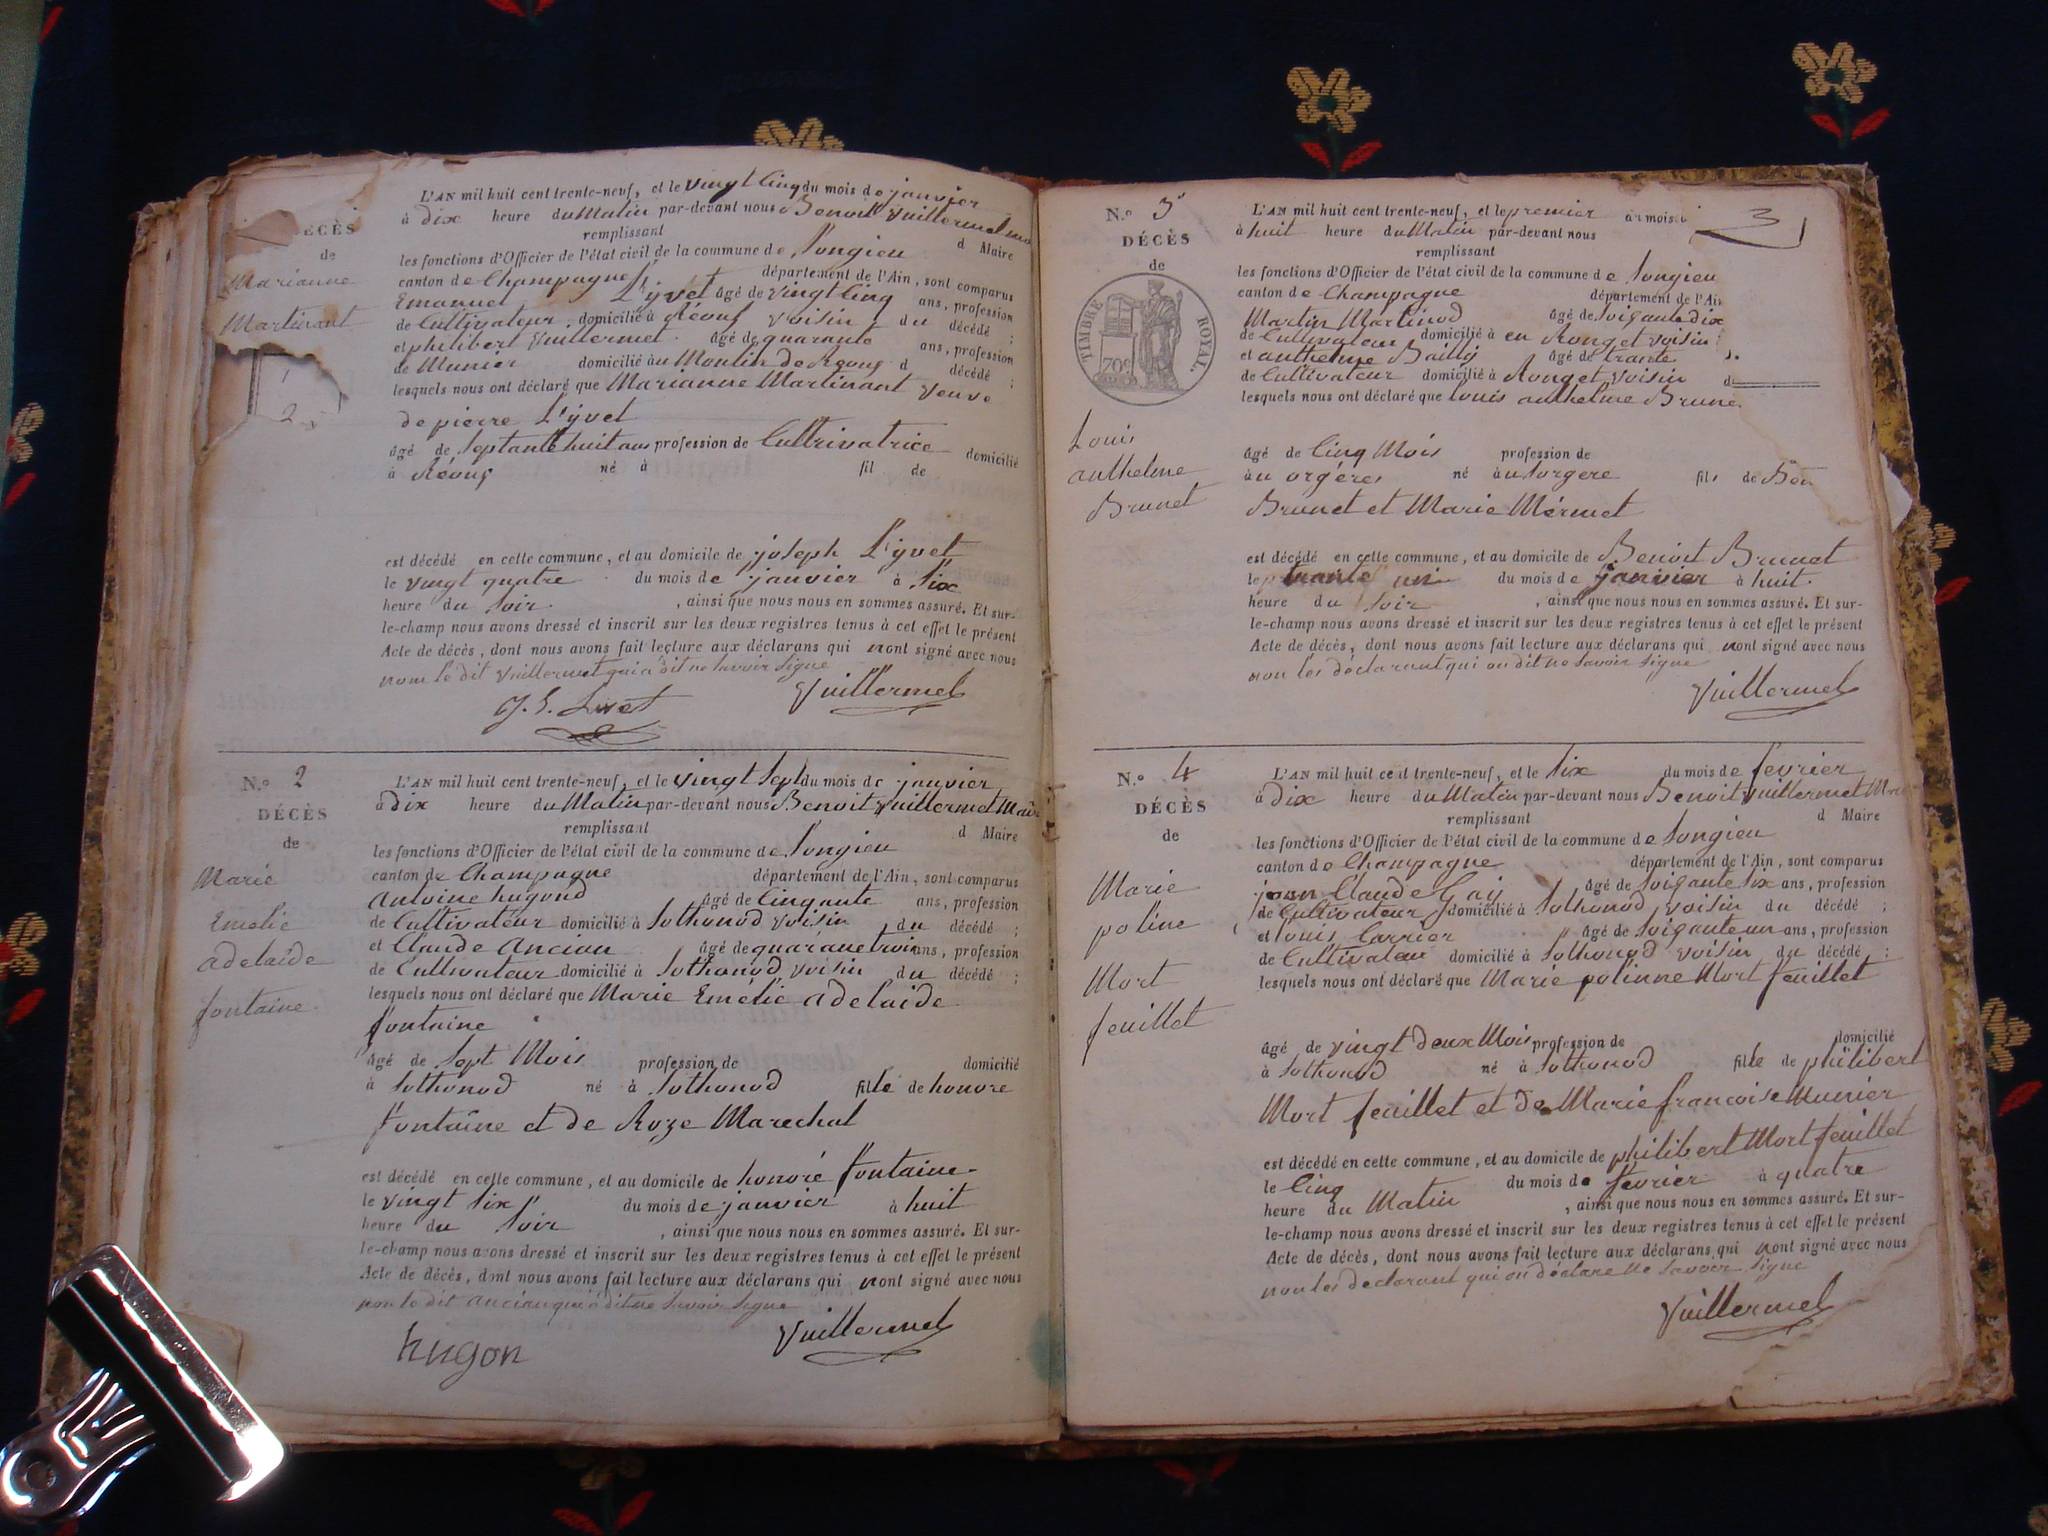 L'AN mil huit cent trente-neuf, et le vingt cinq du mois de janvier
à dix heure du Matin par-devant nous Benoit Vuillermet
remplissant d Maire
les fonctions d'Officier de l'état civil de la commune de Songieu
canton de Champagne département de l'Ain, sont comparus
Emanuel Lyvet âgé de vingt cinq ans, profession
de Cultivateur domicilié à Réous voisin du décédé ;
et philibert Vuillermet âgé de quarante ans, profession
de Munier domicilié au Moulin de Reous d décédé ;
lesquels nous ont déclaré que Marianne Martinant veuve
de pierre Lyvet
âgé de Septante huit ans profession de Cultrivatrice domicilié
à Réous né à fil de
est décédé en cette commune, et au domicile de joseph Lyvet
le vingt quatre du mois de janvier à Six
heure du Soir, ainsi que nous nous en sommes assuré. Et sur-
le-champ nous avons dressé et inscrit sur les deux registres tenus à cet effet le présent
Acte de décès, dont nous avons fait lecture aux déclarans qui nont signé avec nous
nom le dit Vuillermet qui a dit ne Savoir Signe
Vuillermet
DÉCÈS
de
Marianne
Martinant
N.º 2
DÉCÈS
de
Marie
Emelie
adelaide
fontaine
L'AN mil huit cent trente-neuf, et le vingt Sept du mois de janvier
à dix heure du Matin par-devant nous Benoit Vuillermet Maire
remplissant d Maire
les fonctions d'Officier de l'état civil de la commune de Songieu
canton de Champagne département de l'Ain, sont comparus
Antoine hugond âgé de Cinqante ans, profession
de Cultivateur domicilié à Sothonod voisin du décédé ;
et Claude Ancian âgé de quarante trois ans, profession
de Cultivateur domicilié à Sothonod voisin du décédé ;
lesquels nous ont déclaré que Marie Emélie adelaide
fontaine
âgé de Sept Mois profession de domicilié
à Sothonod né à Sothonod fille de honore
fontaine et de Roze Marechal
est décédé en cette commune, et au domicile de honoré fontaine
le vingt Six du mois de janvier à huit
heure du Soir, ainsi que nous nous en sommes assuré. Et sur-
le-champ nous avons dressé et inscrit sur les deux registres tenus à cet effet le présent
Acte de décès, dont nous avons fait lecture aux déclarans qui nont signé avec nous
non le dit Ancian qui a dit ne Savoir Signe
hugon Vuillermet
3
N.º 3
DÉCÈS
de
TIMBRE ROYAL
70c
Louis
anthelme
Brunet
L'AN mil huit cent trente-neuf, et le premier du mois
à huit heure du Matin par-devant nous
remplissant
les fonctions d'Officier de l'état civil de la commune de Songieu
canton de Champagne département de l'Ain
Martin Martinod âgé de Soigante dix
de Cultivateur domicilié à en Rong et voisin
et anthelme Bailly âgé de trante
de Cultivateur domicilié à Rong et voisin d
lesquels nous ont déclaré que Louis anthelme Brune
âgé de Cinq Mois profession de
à u orgéres né à u Lorgere fils de Ben
Brunet et Marie Mérmet
est décédé en cette commune, et au domicile de Benoit Brunet
le trante un du mois de janvier à huit
heure du Soir, ainsi que nous nous en sommes assuré. Et sur-
le-champ nous avons dressé et inscrit sur les deux registres tenus à cet effet le présent
Acte de décès, dont nous avons fait lecture aux déclarans qui nont signé avec nous
non les déclarant qui on dit ne Savoir Signe
Vuillermet
N.º 4
DÉCÈS
de
Marie
poline
Mort
feuillet
L'AN mil huit cent trente-neuf, et le Six du mois de fevrier
à dix heure du Matin par-devant nous Benoit Vuillermet
remplissant d Maire
les fonctions d'Officier de l'état civil de la commune de Songieu
canton de Champagne département de l'Ain, sont comparus
jean Claude Gay âgé de Soigante Six ans, profession
de Cultivateur domicilié à Sothonod voisin du décédé ;
et Louis Carrier âgé de Soigante un ans, profession
de Cultivateur domicilié à Sothonod voisin du décédé ;
lesquels nous ont déclaré que Marie polinne Mort feuillet
âgé de vingt deux Mois profession de domicilié
à Sothonod né à Sothonod fille de philibert
Mort feuillet et de Marie francoise Munier
est décédé en cette commune, et au domicile de philibert Mort feuillet
le Cinq du mois de fevrier à quatre
heure du Matin, ainsi que nous nous en sommes assuré. Et sur-
le-champ nous avons dressé et inscrit sur les deux registres tenus à cet effet le présent
Acte de décès, dont nous avons fait lecture aux déclarans qui nont signé avec nous
non les declarant qui on déclare ne Savoir Signe
Vuillermet